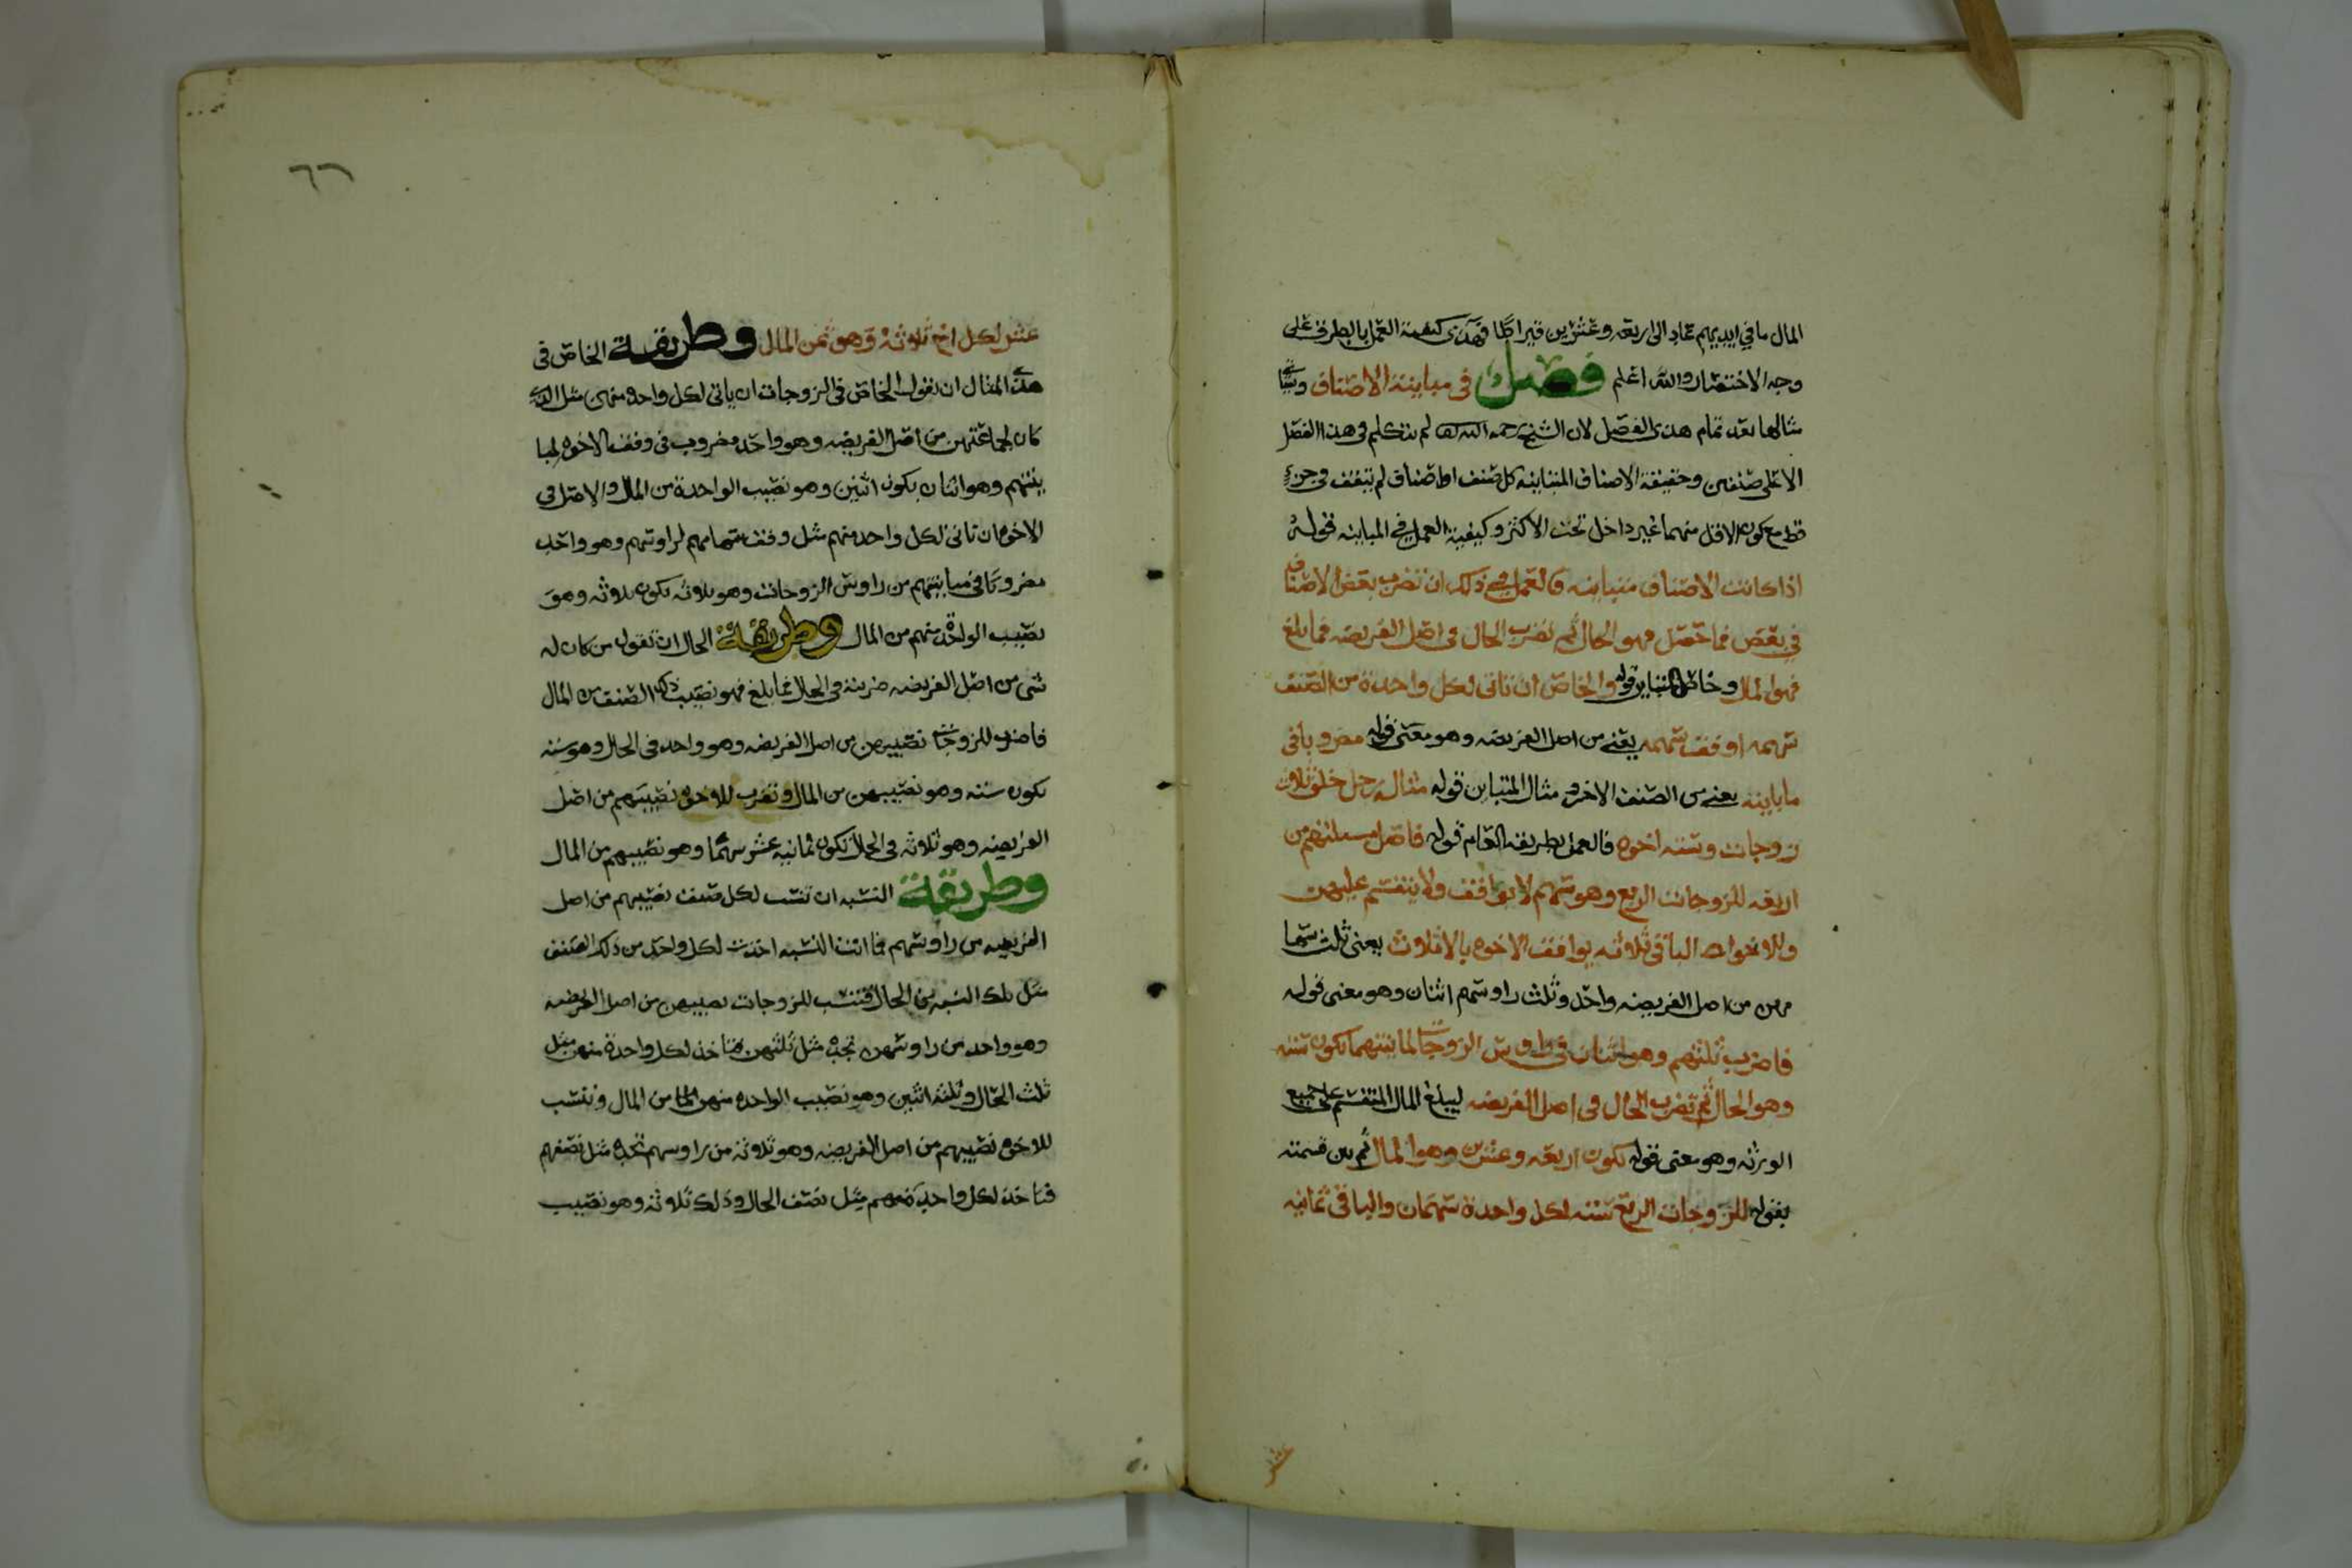 المال ما في ايديهم عاد الى اربعه وعشرين قيراطا فهذى كيفية العمل بالطرف على
وجه الاختصار والله اعلم فصل في مباينة الاصناف وسياتى
مثالها بعد تمام هذى الفصل لان الشيخ رحمه الله لم يتكلم في هذا الفصل
الا على صنفين وحقيقة الاصناف المتباينه كل صنف او اصناف لم تتفق في جزء
قط مع كون الاقل منهما غير داخل تحت الاكثر وكيفية العمل في المباينه قوله
اذا كانت الاصناف متباينه فالعمل في ذلك ان تضرب بعض الاصناف
في بعض فما حصل فهو الحال ثم تضرب الحال في اصل الفريضه فما بلغ
فهو المال وخاص التباين قوله والخاص ان تاتى لكل واحدة من الصنف
سهمه او وفق سهمه يعني من اصل الفريضه وهو معنى قوله مضروبا في
ما باينه يعني من الصنف الاخر ومثال المتباين قوله مثاله رجل خلف ثلاث
زوجات وسته اخوه فالعمل بطريقه العام قوله فاصل مسئلتهم من
اربعه للزوجات الربع وهو سهم لا يوافق ولا ينقسم عليهن
وللاخوه الباقي ثلاثه يوافق الاخوه بالاثلاث يعني ثلث سها
مهم من اصل الفريضه واحد وثلث راوسهم اثنان وهو معنى قوله
فاضرب ثلثهم وهو اثنان في راوس الزوجات لمباينتهما تكون سته
وهو الحال ثم تضرب الحال في اصل الفريضه ليبلغ المال المنقسم على جميع
الورثه وهو معنى قوله تكون اربعه وعشرين وهو المال ثم بين قسمته
بقوله للزوجات الربع سته لكل واحدة سهمان والباقي ثمانيه
عشر
٦٦
عشر لكل اخ ثلاثه وهو ثمن المال وطريقة الخاص في
هذا المثال ان تقول الخاص في الزوجات ان ياتى لكل واحده منهن مثل الذي
كان لجماعتهن من اصل الفريضه وهو واحد مضروب في وفق الاخوه لمبا
ينتهم وهو اثنان يكون اثنين وهو نصيب الواحدة من المال والاصل في
الاخوه ان تاتى لكل واحد منهم مثل وفق سهامهم لراوسهم وهو واحد
مضروبا في مباينهم من راوس الزوجات وهو ثلاثه يكون ثلاثه وهو
نصيب الواحد منهم من المال وطريقة الحال ان تقول من كان له
شي من اصل الفريضه ضربته في الحال فما بلغ فهو نصيب ذلك الصنف من المال
فاضرب للزوجات نصيبهن من اصل الفريضه وهو واحد في الحال وهو سته
يكون سته وهو نصيبهن من المال وتضرب للاخوه نصيبهم من اصل
الفريضه وهو ثلاثه في الحال تكون ثمانيه عشر سهما وهو نصيبهم من المال
وطريقة النسبه ان تنسب لكل صنف نصيبهم من اصل
الفريضه من راوسهم فما اتت النسبه اخذت لكل واحد من ذلك الصنف
مثل تلك النسبه من الحال فتنسب للزوجات نصيبهن من اصل الفريضه
وهو واحد من راوسهن تجده مثل ثلثهن فتاخذ لكل واحدة منهن مثل
ثلث الحال وثلثه اثنين وهو نصيب الواحده منهن من المال وتنسب
للاخوه نصيبهم من اصل الفريضه وهو ثلاثه من راوسهم تجده مثل نصفهم
فتاخذ لكل واحد منهم مثل نصف الحال وذلك ثلاثه وهو نصيب